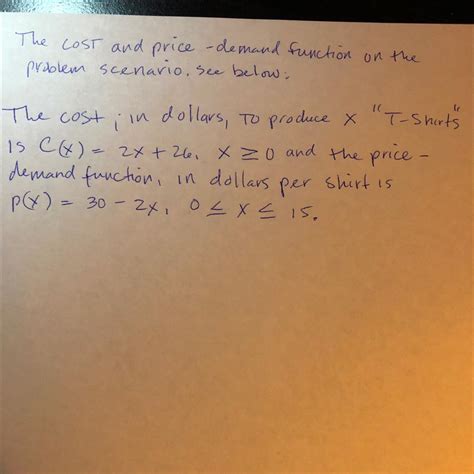 The cost and price-demand function on the
problem scenario. See below:
The cost, in dollars, to produce x "T-Shirts"
is C(x) = 2x + 26, x ≥ 0 and the price-
demand function, in dollars per shirt is
p(x) = 30 - 2x, 0 ≤ x ≤ 15.